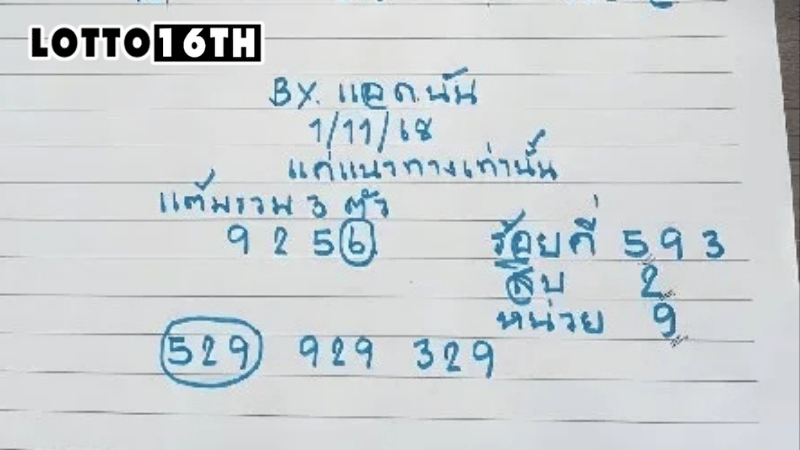 LOTTO 16TH
BY. แอด.นัน
1/11/68
แค่แนวทางเท่านั้น
แต้มรวม 3 ตัว
9 2 5 6
ร้อยคี่ 5 9 3
สิบ 2
หน่วย 9
529 929 329